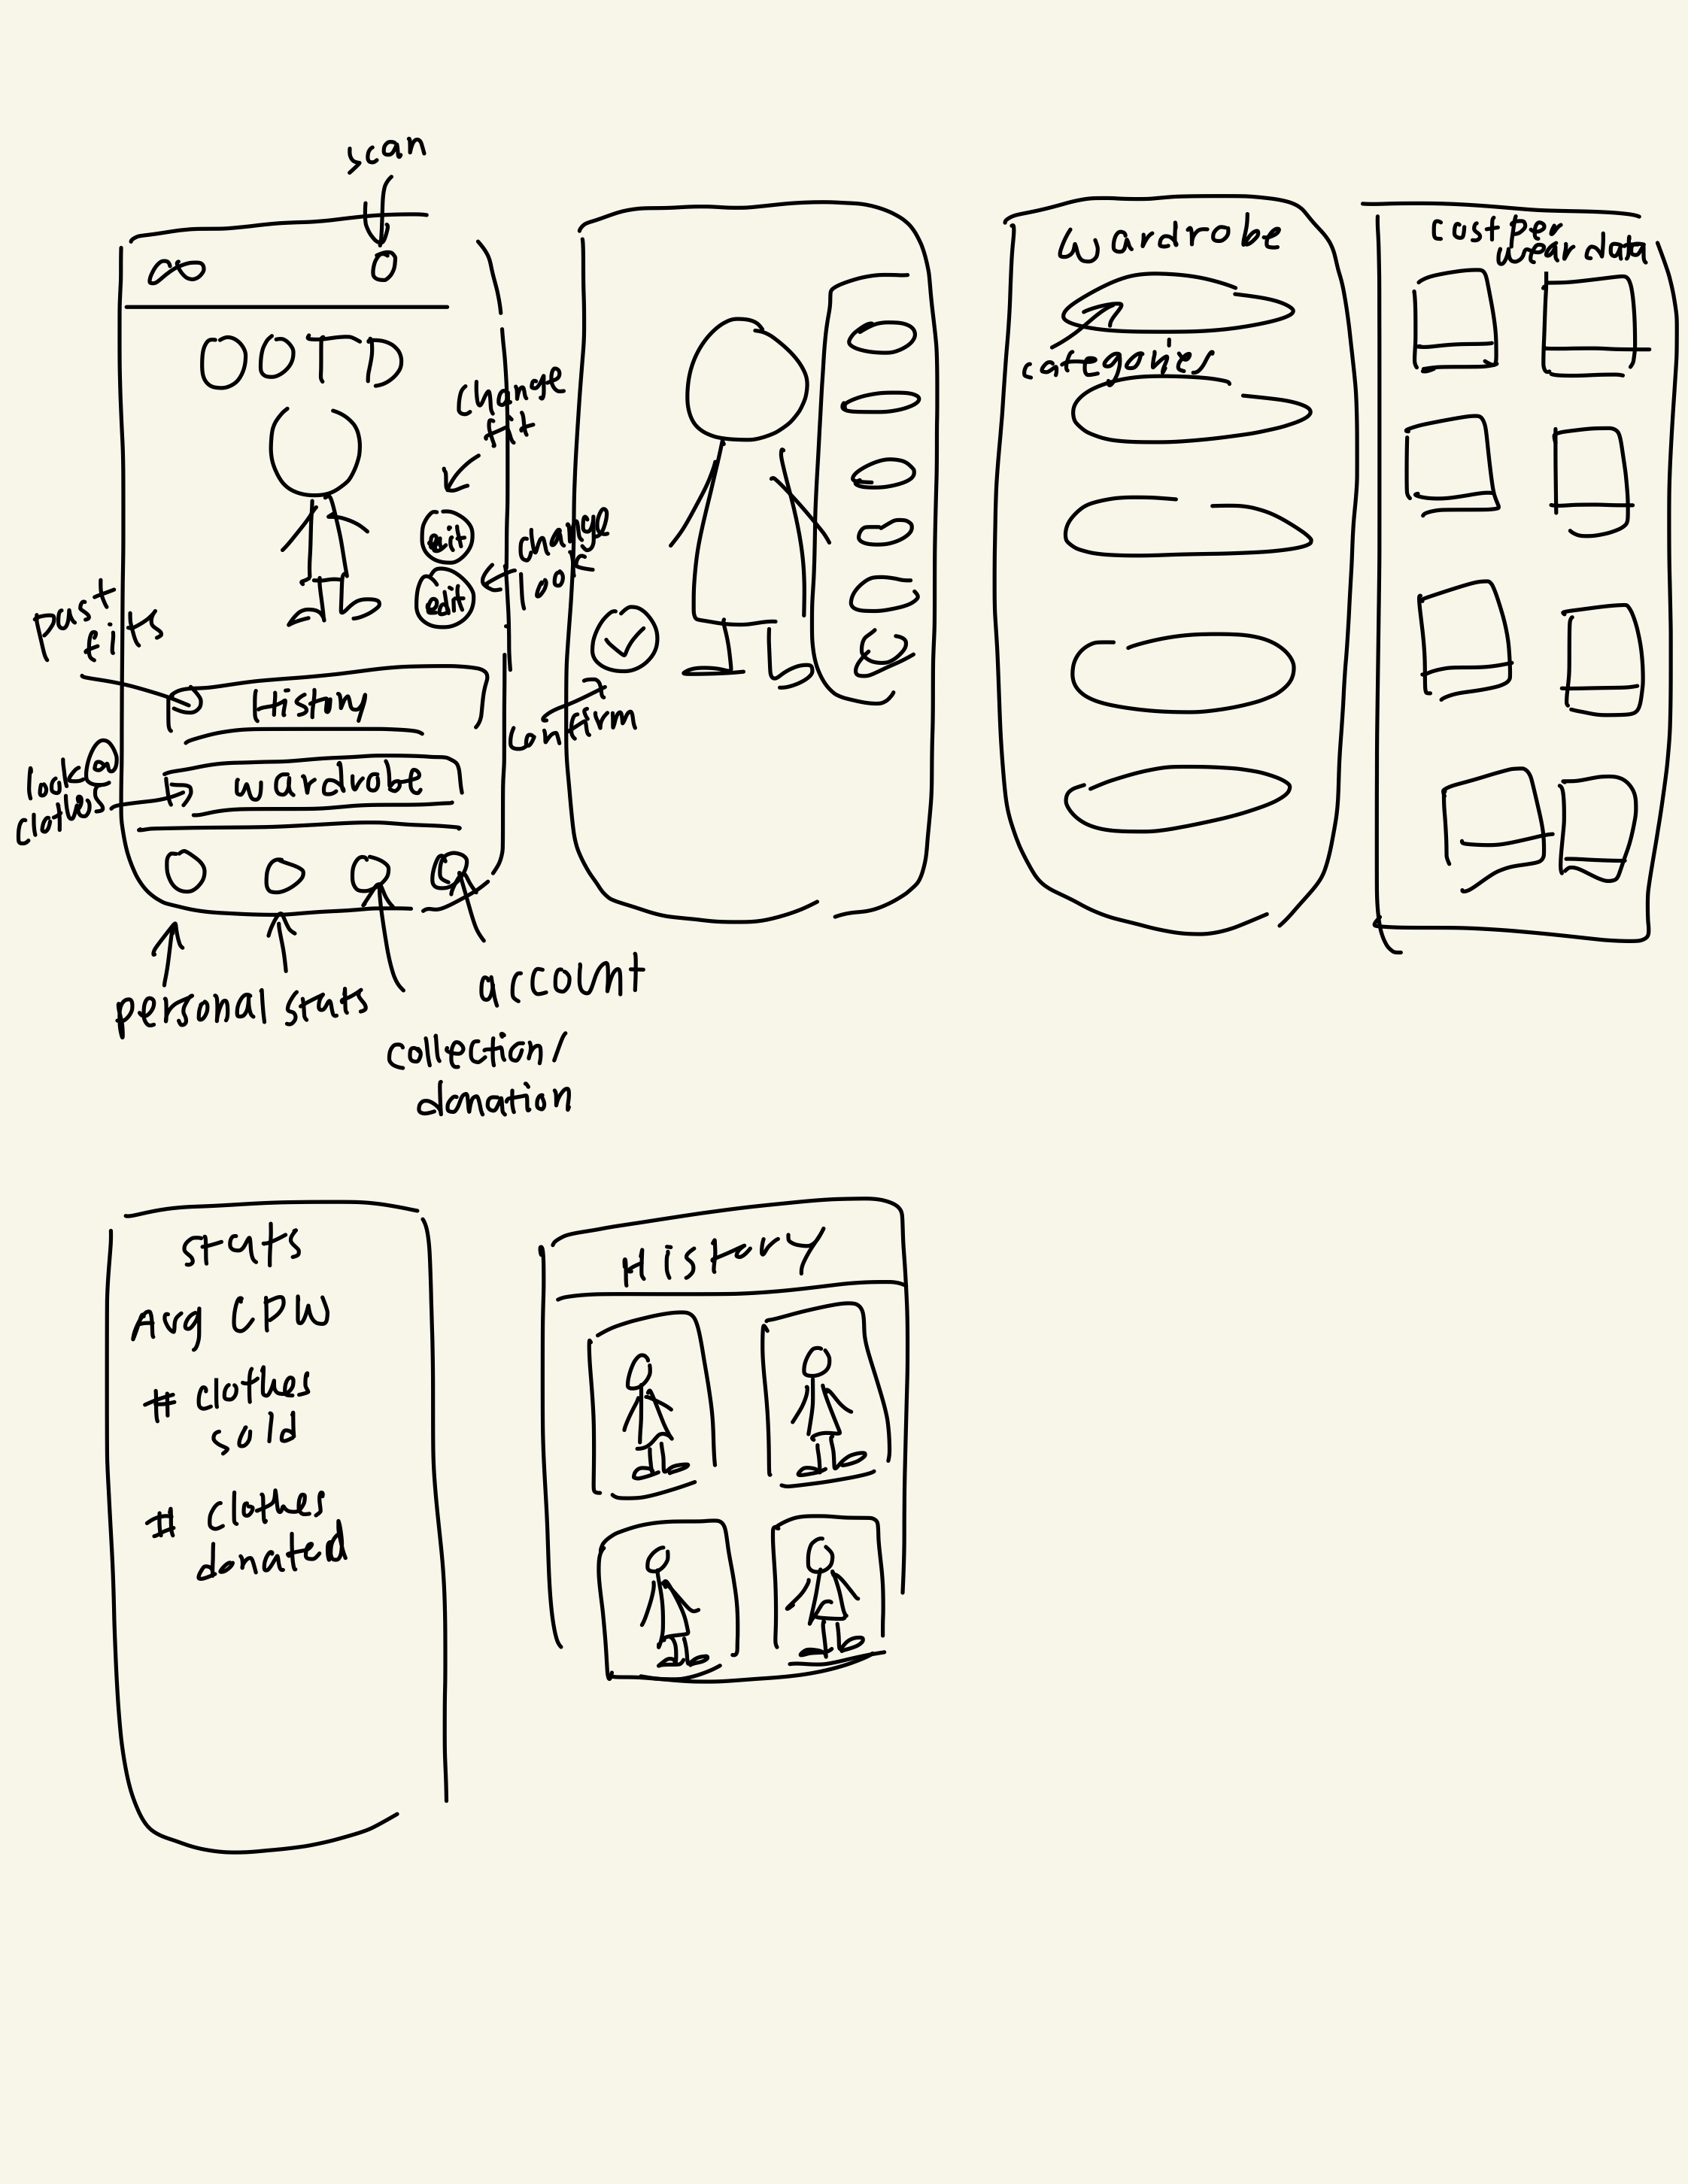 scan
OOTD
change
fit
edit
change
look
edit
past
fits
History
look @
clothes
wardrobe
personal stats
account
collection/
donation
confirm
Wardrobe
categories
cost per
wear data
stats
Avg CPW
# clothes
sold
# clothes
donated
History